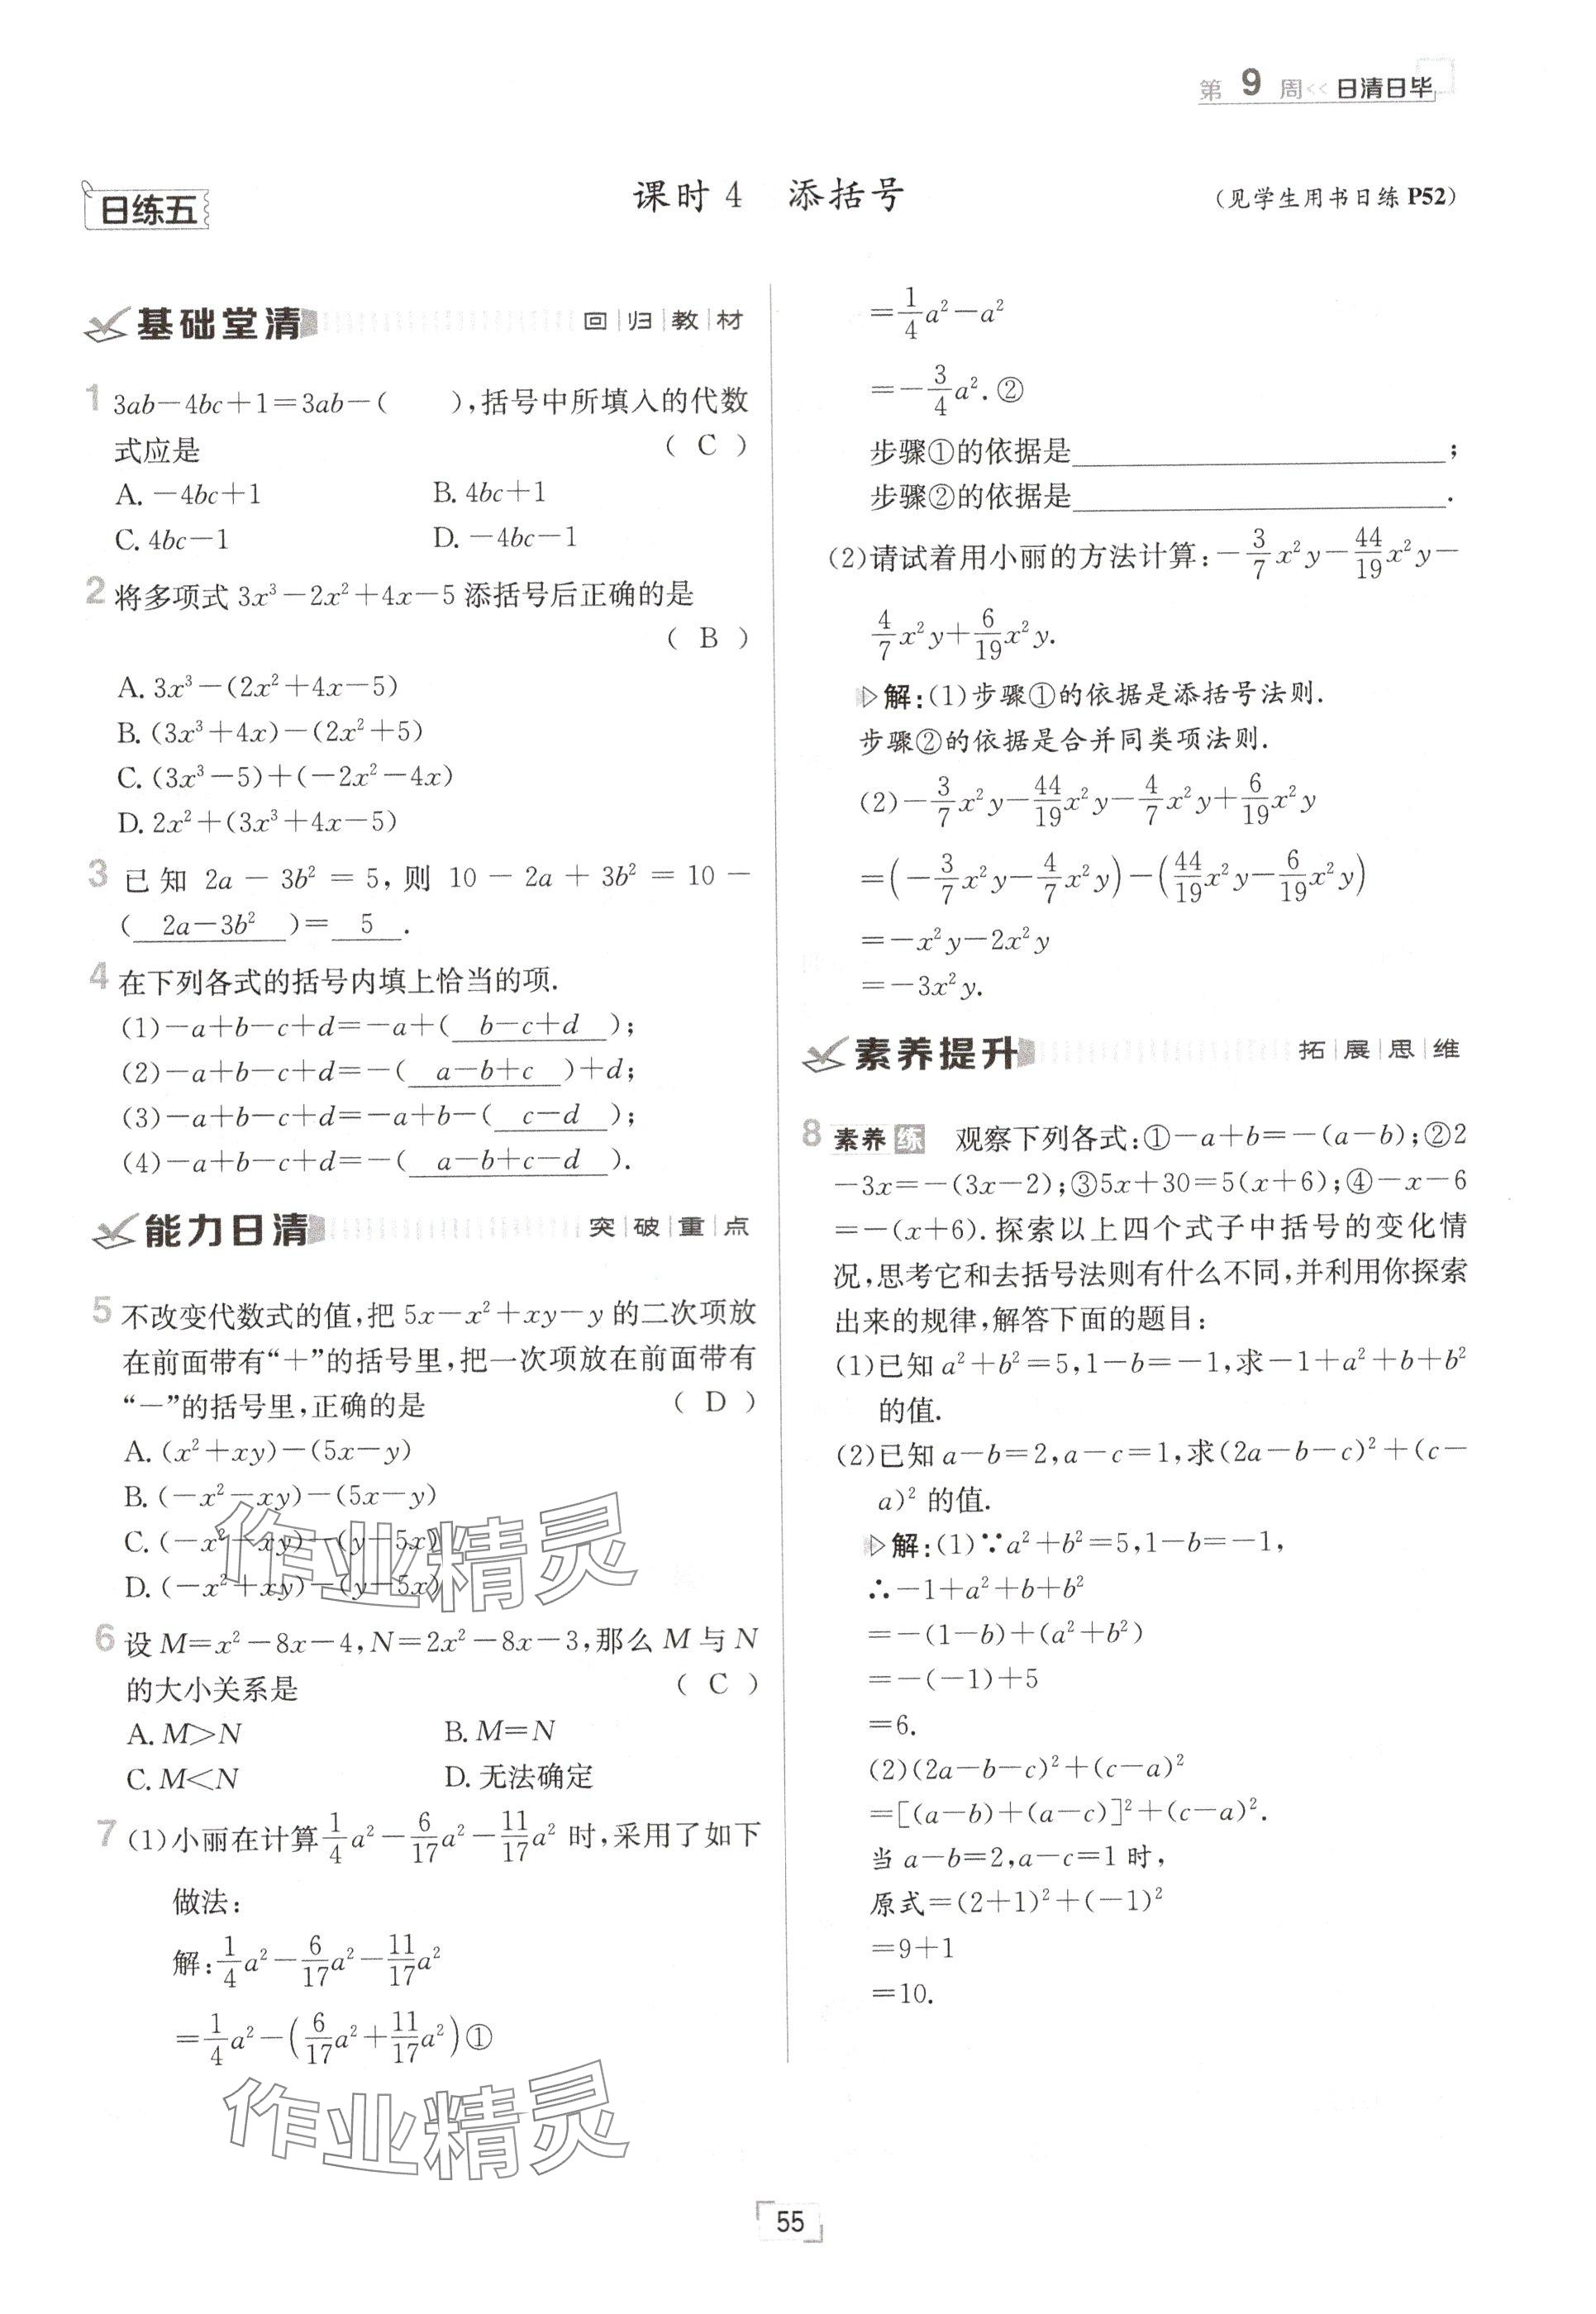 第 9 周<< 日清日毕
日练五
课时4 添括号
(见学生用书日练 P52)
基础堂清 回|归|教|材
1 3ab-4bc+1=3ab-(　　),括号中所填入的代数
式应是 ( C )
A. -4bc+1 B. 4bc+1
C. 4bc-1 D. -4bc-1
2 将多项式 3x³-2x²+4x-5 添括号后正确的是
( B )
A. 3x³-(2x²+4x-5)
B. (3x³+4x)-(2x²+5)
C. (3x³-5)+(-2x²-4x)
D. 2x²+(3x³+4x-5)
3 已知 2a-3b²=5,则 10-2a+3b²=10-
( 2a-3b² )= 5 .
4 在下列各式的括号内填上恰当的项.
(1)-a+b-c+d=-a+( b-c+d );
(2)-a+b-c+d=-( a-b+c )+d;
(3)-a+b-c+d=-a+b-( c-d );
(4)-a+b-c+d=-( a-b+c-d ).
能力日清 突|破|重|点
5 不改变代数式的值,把 5x-x²+xy-y 的二次项放
在前面带有“+”的括号里,把一次项放在前面带有
“-”的括号里,正确的是 ( D )
A. (x²+xy)-(5x-y)
B. (-x²-xy)-(5x-y)
C. (-x²-xy)-(y-5x)
D. (-x²+xy)-(y-5x)
作业精灵
6 设 M=x²-8x-4,N=2x²-8x-3,那么 M 与 N
的大小关系是 ( C )
A. M>N B. M=N
C. M<N D. 无法确定
7 (1)小丽在计算 1/4 a²-6/17 a²-11/17 a² 时,采用了如下
做法:
解:1/4 a²-6/17 a²-11/17 a²
=1/4 a²-(6/17 a²+11/17 a²)①
作业精灵
=1/4 a²-a²
=-3/4 a².②
步骤①的依据是____________;
步骤②的依据是____________.
(2)请试着用小丽的方法计算:-3/7 x²y-44/19 x²y-
4/7 x²y+6/19 x²y.
▷解:(1)步骤①的依据是添括号法则.
步骤②的依据是合并同类项法则.
(2)-3/7 x²y-44/19 x²y-4/7 x²y+6/19 x²y
=(-3/7 x²y-4/7 x²y)-(44/19 x²y-6/19 x²y)
=-x²y-2x²y
=-3x²y.
素养提升 拓|展|思|维
8 素养 练 观察下列各式:①-a+b=-(a-b);②2
-3x=-(3x-2);③5x+30=5(x+6);④-x-6
=-(x+6).探索以上四个式子中括号的变化情
况,思考它和去括号法则有什么不同,并利用你探索
出来的规律,解答下面的题目:
(1)已知 a²+b²=5,1-b=-1,求-1+a²+b+b²
的值.
(2)已知 a-b=2,a-c=1,求(2a-b-c)²+(c-
a)² 的值.
▷解:(1)∵a²+b²=5,1-b=-1,
∴-1+a²+b+b²
=-(1-b)+(a²+b²)
=-(-1)+5
=6.
(2)(2a-b-c)²+(c-a)²
=[(a-b)+(a-c)]²+(c-a)².
当 a-b=2,a-c=1 时,
原式=(2+1)²+(-1)²
=9+1
=10.
55